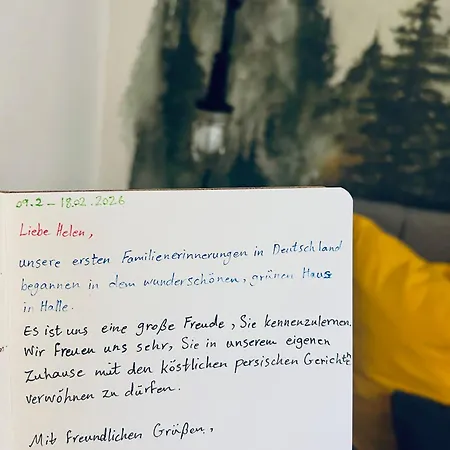 09.2 - 18.02.2026
Liebe Helen,
unsere ersten Familienerinnerungen in Deutschland
begannen in dem wunderschönen, grünen Haus
in Halle.
Es ist uns eine große Freude, Sie kennenzulernen.
Wir freuen uns sehr, Sie in unserem eigenen
Zuhause mit den köstlichen persischen Gerichten
verwöhnen zu dürfen.
Mit freundlichen Grüßen,